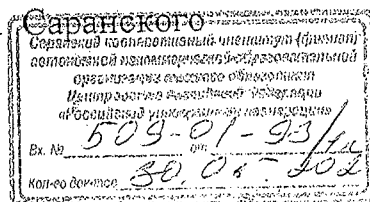 Саранского
Саранский кооперативный институт (филиал)
автономной некоммерческой образовательной
организации высшего образования
Центросоюза Российской Федерации
«Российский университет кооперации»
Вх. № 509-01-93/
Кол-во док-тов 30.0